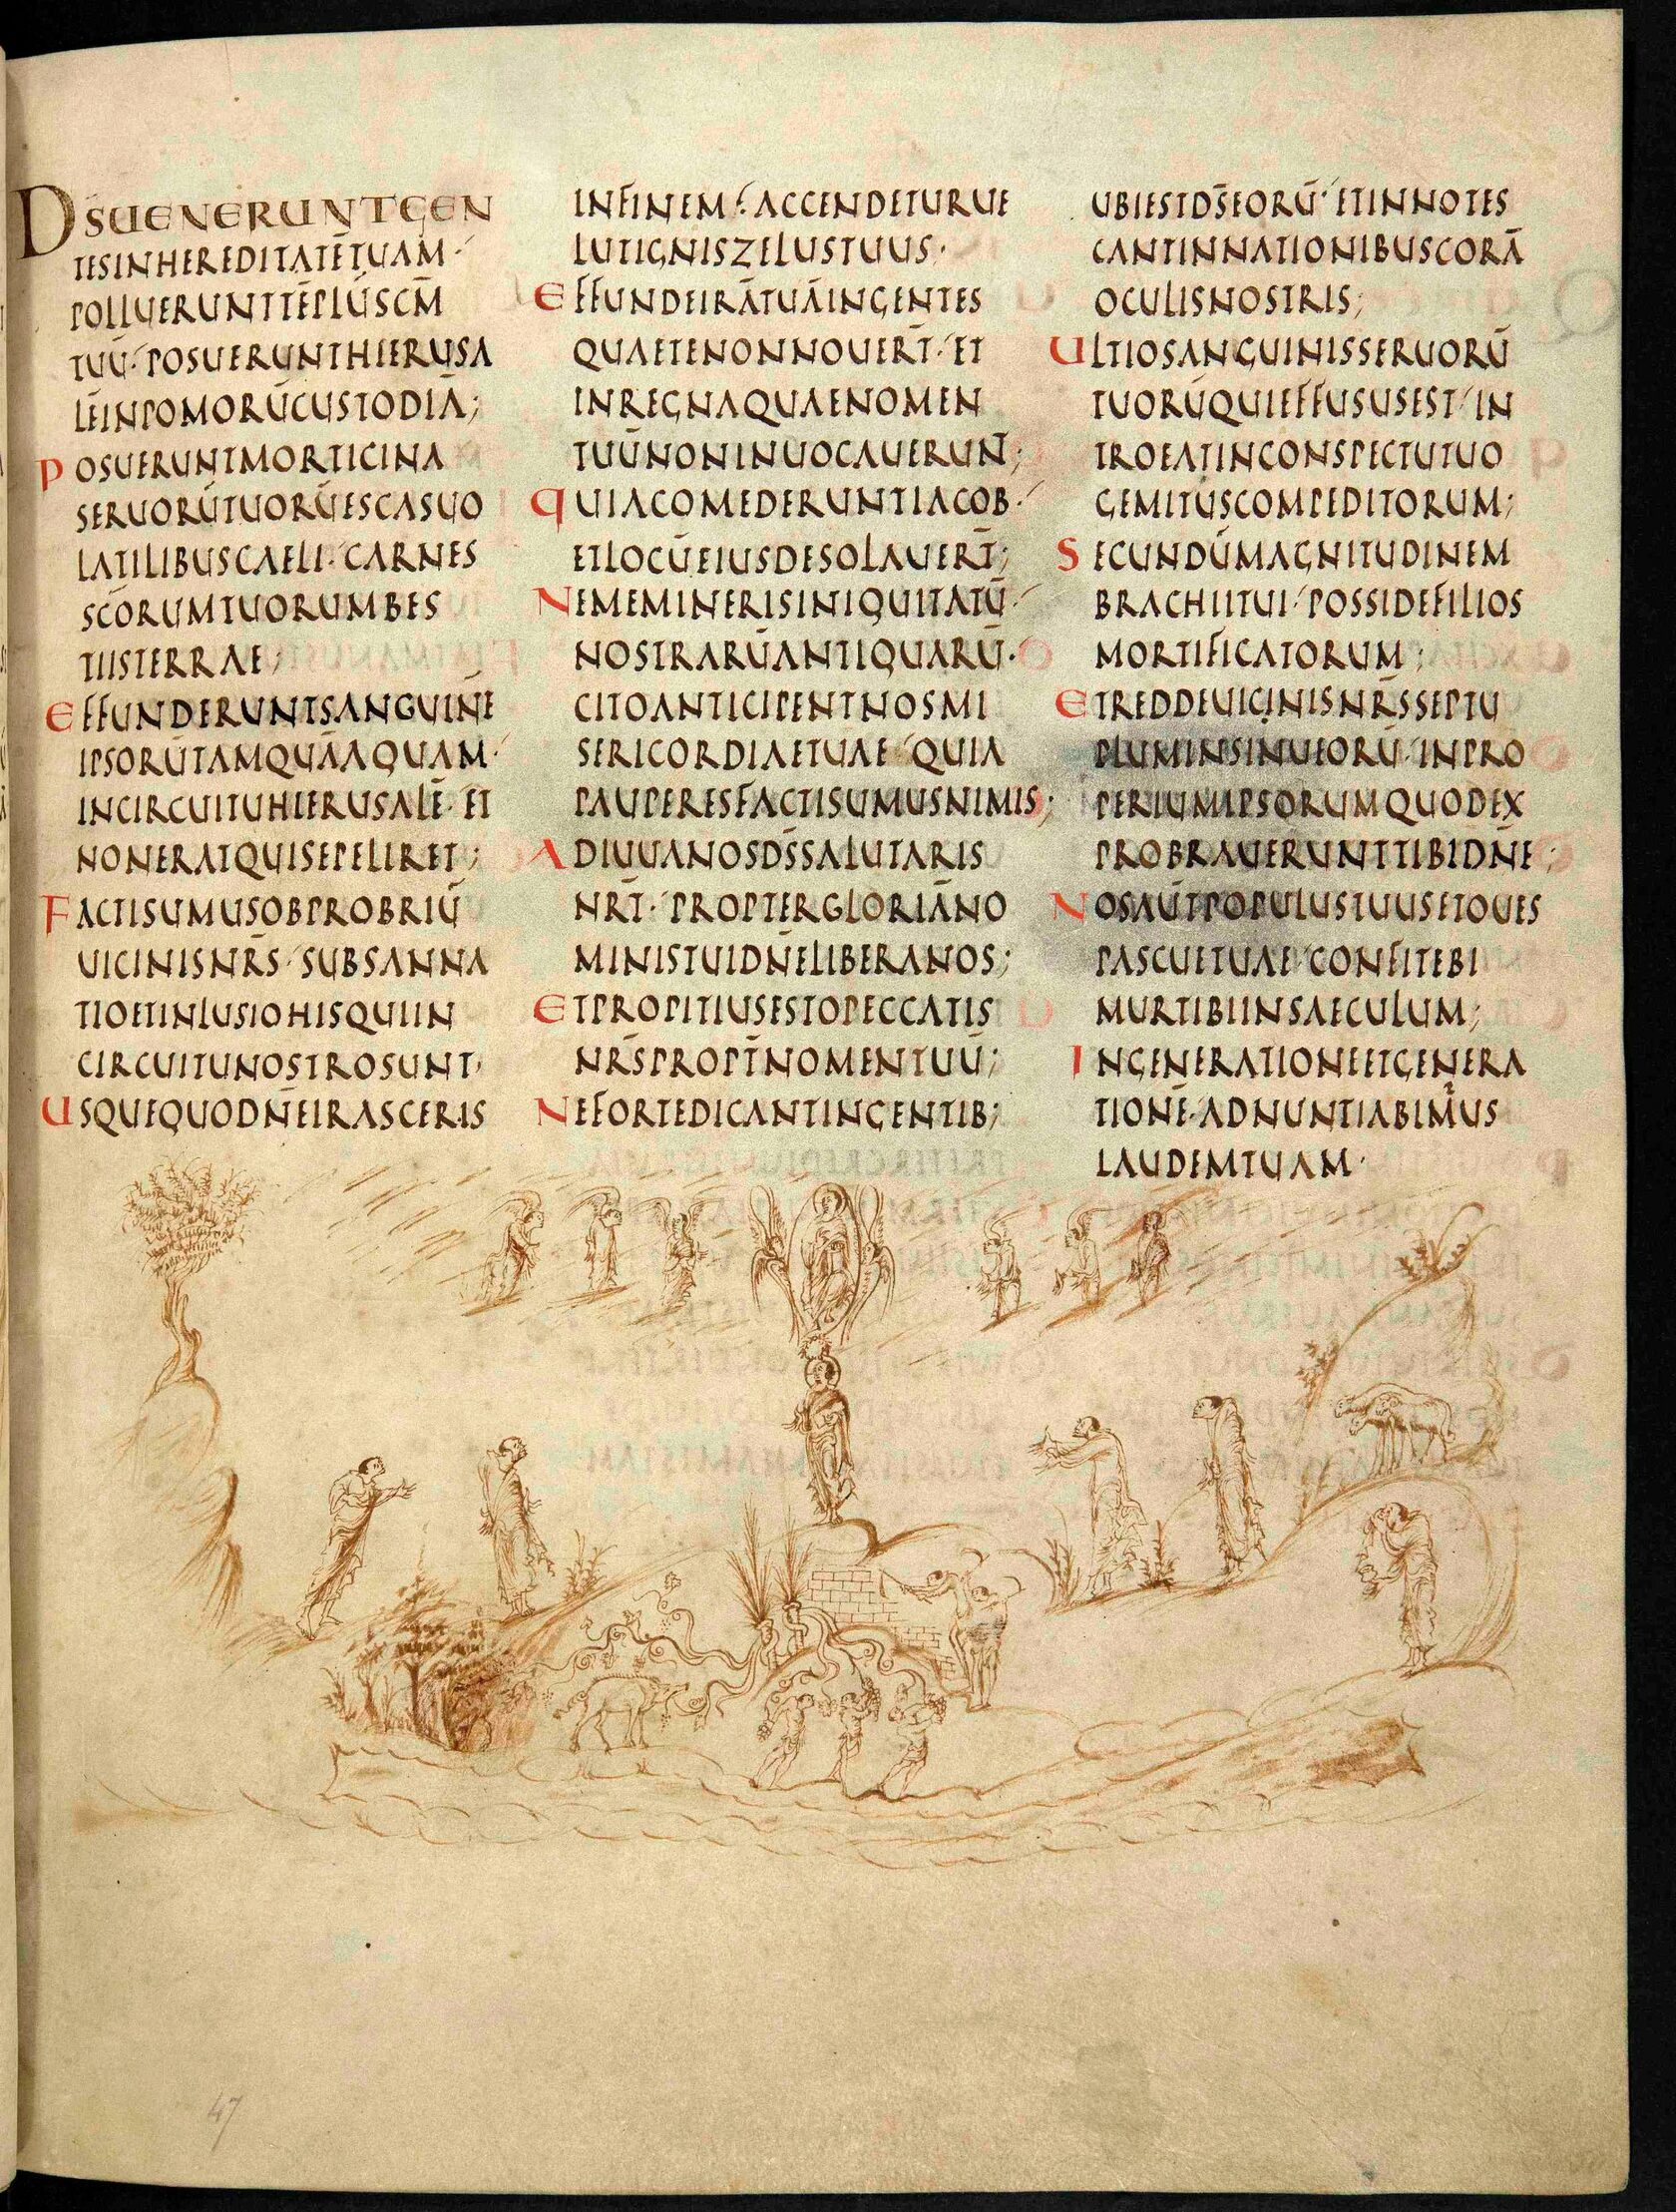 D̄SUENERUNTGEN
TESINHEREDITATĒTUAM·
POLLUERUNTTĒPLŪSC̄M
TUŪ·POSUERUNTHIERUSA
LĒINPOMORŪCUSTODIĀ;
POSUERUNTMORTICINA
SERUORŪTUORŪESCASUO
LATILIBUSCAELI·CARNES
SC̄ORUMTUORUMBES
TIISTERRAE;
EFFUNDERUNTSANGUINĒ
IPSORŪTAMQUĀAQUAM·
INCIRCUITUHIERUSALĒ·ET
NONERATQUISEPELIRET;
FACTISUMUSOBPROBRIŪ
UICINISNR̄S·SUBSANNA
TIOETINLUSIOHISQUIIN
CIRCUITUNOSTROSUNT·
USQUEQUODN̄EIRASCERIS
INFINEM:ACCENDETURUE
LUTIGNISZELUSTUUS·
EFFUNDEIRĀTUĀINGENTES
QUAETENONNOUERT̄·ET
INREGNAQUAENOMEN
TUŪNONINUOCAUERUN̄T;
QUIACOMEDERUNTIACOB·
ETLOCŪEIUSDESOLAUERT̄;
NEMEMINERISINIQUITATŪ·
NOSTRARŪANTIQUARŪ·
CITOANTICIPENTNOSMI
SERICORDIAETUAE·QUIA
PAUPERESFACTISUMUSNIMIS;
ADIUUANOSD̄SSALUTARIS
NR̄T·PROPTERGLORIĀNO
MINISTUIDN̄ELIBERANOS;
ETPROPITIUSESTOPECCATIS
NR̄SPROPT̄NOMENTUŪ;
NEFORTEDICANTINGENTIB;
UBIESTD̄SEORŪ·ETINNOTES
CANTINNATIONIBUSCORĀ
OCULISNOSTRIS;
ULTIOSANGUINISSERUORŪ
TUORŪQUIEFFUSUSEST·IN
TROEATINCONSPECTUTUO
GEMITUSCOMPEDITORUM;
SECUNDŪMAGNITUDINEM
BRACHIITUI·POSSIDEFILIOS
MORTIFICATORUM;
ETREDDEUICINISNR̄SSEPTU
PLUMINSINUEORŪ·INPRO
PERIUMIPSORUMQUODEX
PROBRAUERUNTTIBIDN̄E;
NOSAŪTPOPULUSTUUSETOUES
PASCUETUAE·CONFITEBI
MURTIBIINSAECULUM;
INGENERATIONEETGENERA
TIONĒ·ADNUNTIABIMUS
LAUDEMTUAM·
47